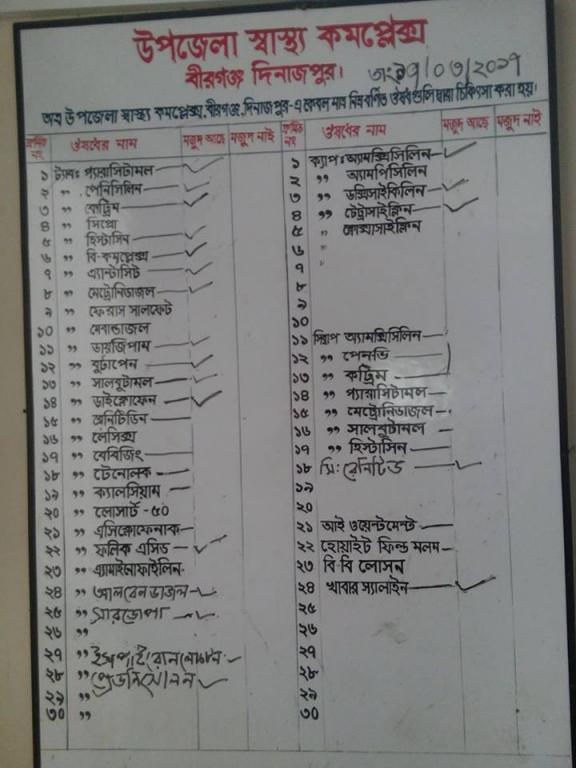 উপজেলা স্বাস্থ্য কমপ্লেক্স
বীরগঞ্জ দিনাজপুর।
অত্র উপজেলা স্বাস্থ্য কমপ্লেক্স, বীরগঞ্জ, দিনাজপুর-এ কেবল মাত্র নিম্ন বর্ণিত ঔষধ গুলি দ্বারা চিকিৎসা করা হয়।
ক্রমিক নং ঔষধের নাম মজুদ আছে মজুদ নাই
১ ট্যাবঃ প্যারাসিটামল
২ " পেনিসিলিন
৩ " কেট্রিম
৪ " সিপ্রো
৫ " হিস্টাসিন
৬ " বি-কমপ্লেক্স
৭ " এ্যান্টাসিট
৮ " মেট্রোনিডাজল
৯ " ফেরাস সালফেট
১০ " মেবান্ডাজল
১১ " ডায়জিপাম
১২ " বুটাপেন
১৩ " সালবুটামল
১৪ " ডাইক্লোফেন
১৫ " রেনিটিডিন
১৬ " লেসিক্স
১৭ " বেবিজিং
১৮ " টেনোলক
১৯ " ক্যালসিয়াম
২০ " লোসার্ট -৫০
২১ " এসিক্লোফেনাক
২২ " ফলিক এসিড
২৩ " এ্যামাইনোফাইলিন
২৪ " আলবেনডাজল
২৫ "
২৬ "
২৭ "
২৮ "
২৯ "
৩০ "
ক্রমিক নং ঔষধের নাম মজুদ আছে মজুদ নাই
১ ক্যাপঃ অ্যামক্সিসিলিন
২ " অ্যামপিসিলিন
৩ " ডক্সিসাইকিলিন
৪ " টেট্রাসাইক্লিন
৫ " ক্লোক্সাসাইক্লিন
৬ "
৭ "
৮
৯
১০
১১ সিরাপ অ্যামক্সিসিলিন
১২ " পেনভি
১৩ " কট্রিম
১৪ " প্যারাসিটামল
১৫ " মেট্রোনিডাজল
১৬ " সালবুটামল
১৭ " হিস্টাসিন
১৮ সি: রেনিটিড
১৯
২০
২১ আই ওয়েন্টমেন্ট
২২ হোয়াইট ফিল্ড মলম
২৩ বি-বি লোসন
২৪ খাবার স্যালাইন
২৫
২৬
২৭
২৮
২৯
৩০